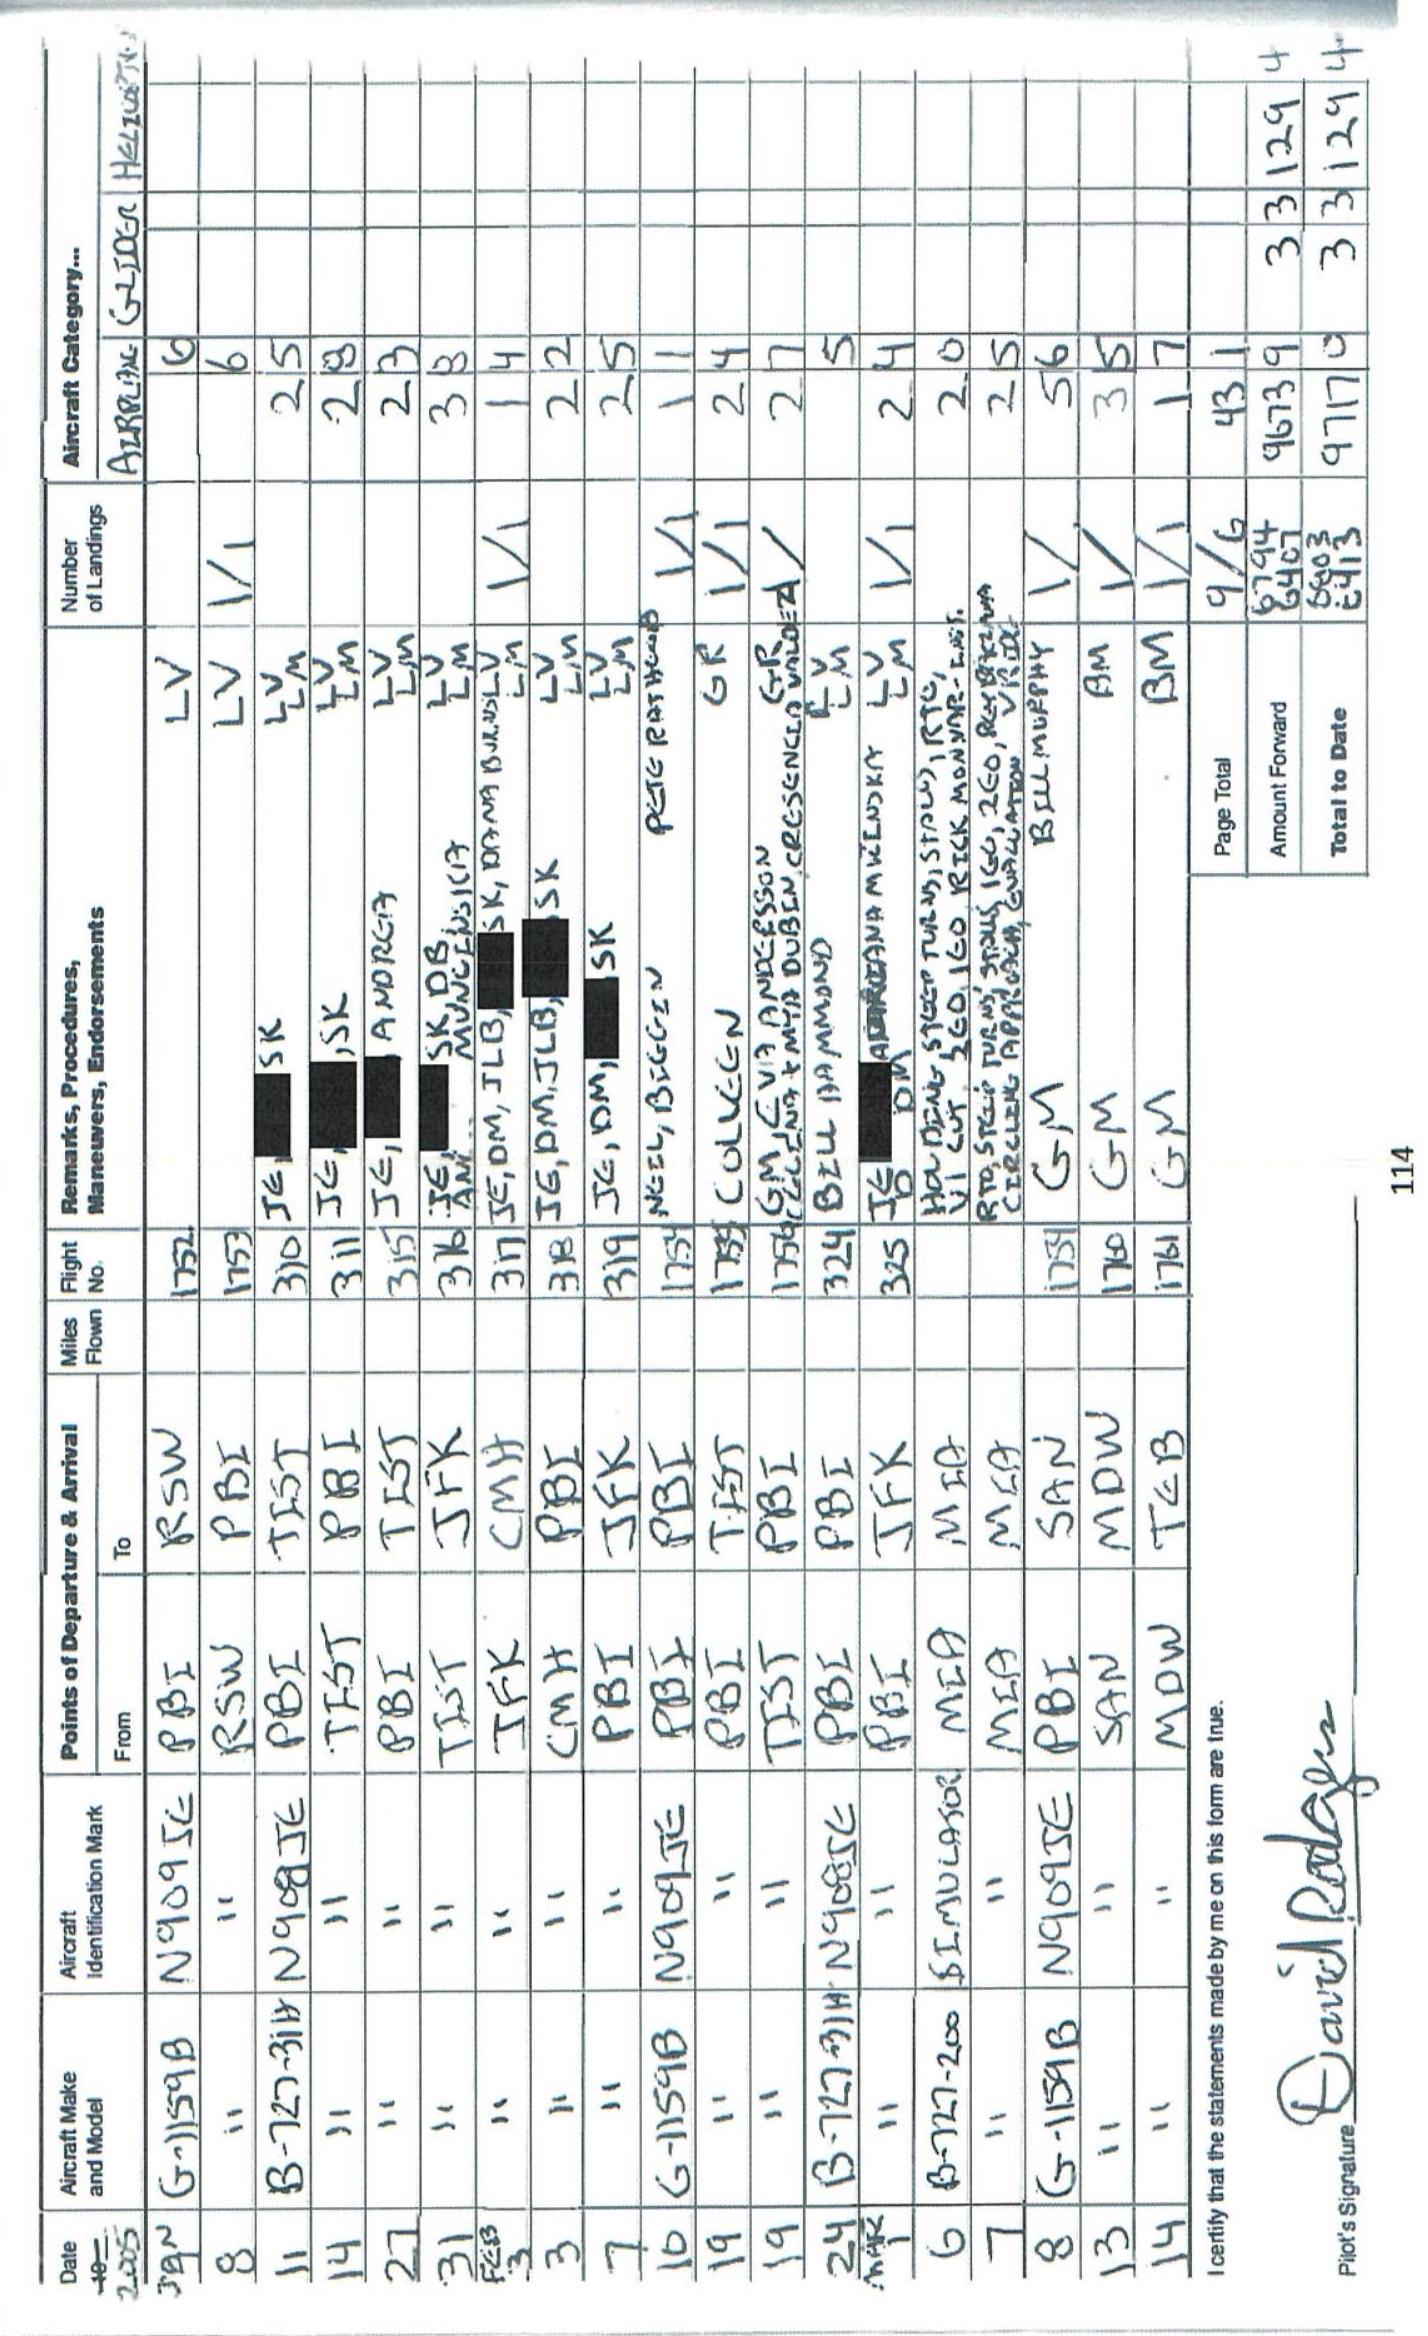 Date 2005 Aircraft Make and Model Aircraft Identification Mark Points of Departure & Arrival From To Miles Flown Flight No. Remarks, Procedures, Maneuvers, Endorsements Number of Landings Aircraft Category... AIRPLANE GLIDER HELICOPTER
JAN G-1159B N909JE PBI RSW 1752 LV 6
8 " " RSW PBI 1753 LV 1/1 6
11 B-727-31H N908JE PBI TIST 310 JE, SK LV LM 2 5
14 " " TIST PBI 311 JE, , SK LV LM 2 8
27 " " PBI TIST 315 JE, , ANDREA LV LM 2 3
31 " " TIST JFK 316 JE, SK, DB LV LM 3 8
FEB 3 " " JFK CMH 317 JE, DM, JLB, SK, DANA BURNS LV LM 1/1 1 4
3 " " CMH PBI 318 JE, DM, JLB, SK LV LM 2 2
7 " " PBI JFK 319 JE, DM, SK LV LM 2 5
10 G-1159B N909JE PBI PBI 1754 NEIL, BIGGIN PETE RATHGEB 1/1 1 1
19 " " PBI TIST 1755 COLLEEN GR 1/1 2 4
19 " " TIST PBI 1756 GM, EVA ANDERSSON GLENN & MYA DUBIN, CRESENCIA VALDEZ GR 1/ 2 7
24 B-727-31H N908JE PBI PBI 324 BILL HAMMOND LV LM 5
MAR 1 " " PBI JFK 325 JE DM LV LM 1/1 2 4
6 B-727-200 SIMULATOR MIA MIA HOLDING, STEEP TURNS, STALLS, RTO, V1 CUT, 2EO, 1EO RICK MONNAR-INST. 2 0
7 " " MIA MIA RTO, STEEP TURNS, STALLS, 1EO, 2EO, CIRCLING APPROACH, EVALUATION 2 5
8 G-1159B N909JE PBI SAN GM BILL MURPHY 1/ 5 6
13 " " SAN MDW 1760 GM BM 1/ 3 5
14 " " MDW TEB 1761 GM BM 1/1 1 7
I certify that the statements made by me on this form are true.
Page Total 9/6 43 1
Amount Forward 6794 6407 9673 9 3 3 129 4
Total to Date 6413 9717 0 3 3 129 4
Pilot's Signature David Rodgers
114